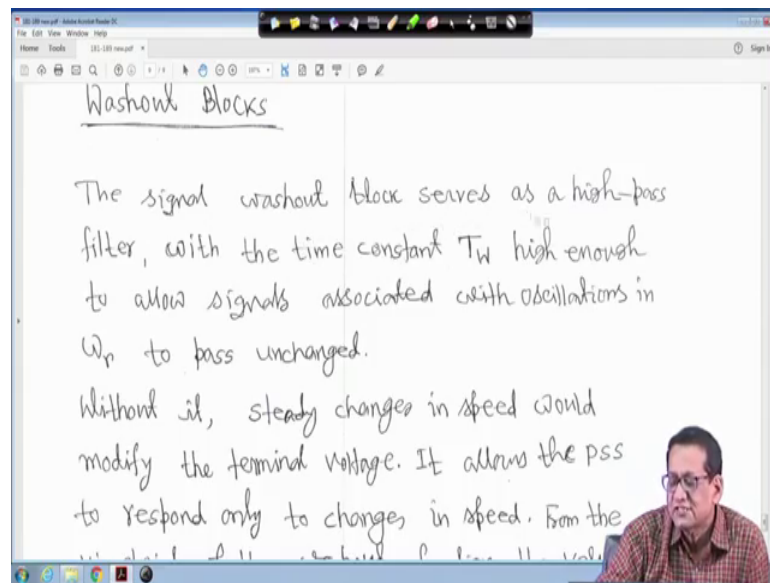 181-189 new.pdf - Adobe Acrobat Reader DC
File Edit View Window Help
Home Tools 181-189 new.pdf × Sign In
Washout Blocks
The signal washout block serves as a high-pass
filter, with the time constant Tw high enough
to allow signals associated with oscillations in
ωr to pass unchanged.
Without it, steady changes in speed would
modify the terminal voltage. It allows the PSS
to respond only to changes in speed. From the